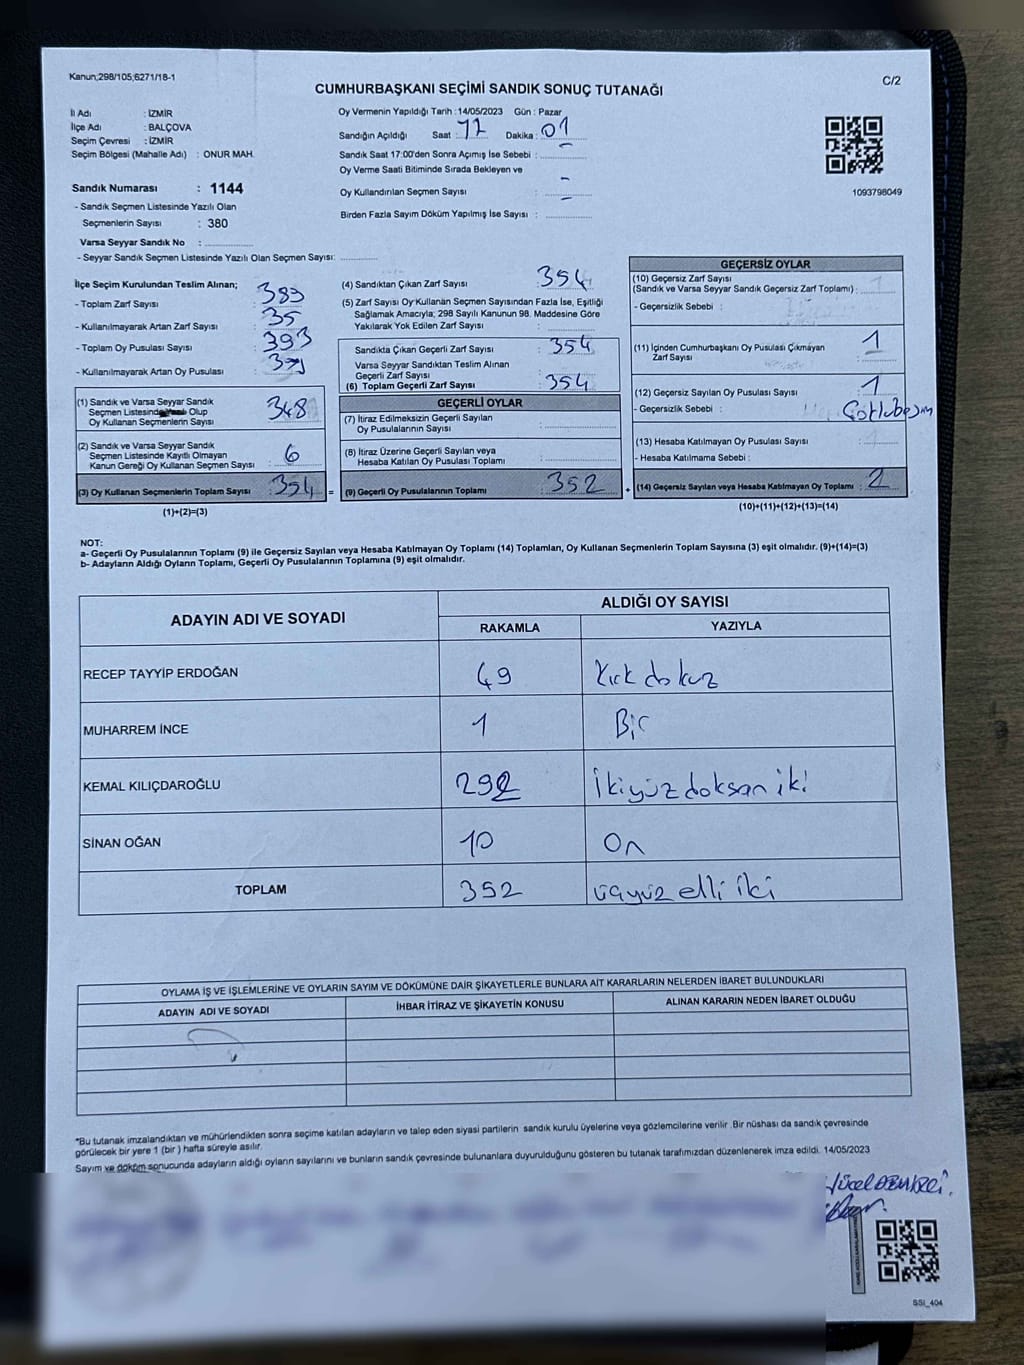 Kanun;298/105;6271/18-1
C/2
CUMHURBAŞKANI SEÇİMİ SANDIK SONUÇ TUTANAĞI
İl Adı : İZMİR
İlçe Adı : BALÇOVA
Seçim Çevresi : İZMİR
Seçim Bölgesi (Mahalle Adı) : ONUR MAH.
Sandık Numarası : 1144
- Sandık Seçmen Listesinde Yazılı Olan
Seçmenlerin Sayısı : 380
Varsa Seyyar Sandık No :
- Seyyar Sandık Seçmen Listesinde Yazılı Olan Seçmen Sayısı:
Oy Vermenin Yapıldığı Tarih :14/05/2023 Gün : Pazar
Sandığın Açıldığı Saat : 17 Dakika : 01
Sandık Saat 17:00'den Sonra Açımış İse Sebebi : -
Oy Verme Saati Bitiminde Sırada Bekleyen ve
Oy Kullandırılan Seçmen Sayısı : -
Birden Fazla Sayım Döküm Yapılmış İse Sayısı : -
1093798049
İlçe Seçim Kurulundan Teslim Alınan;
- Toplam Zarf Sayısı : 389
- Kullanılmayarak Artan Zarf Sayısı : 35
- Toplam Oy Pusulası Sayısı : 393
- Kullanılmayarak Artan Oy Pusulası :
(1) Sandık ve Varsa Seyyar Sandık
Seçmen Listesinde Olup
Oy Kullanan Seçmenlerin Sayısı : 348
(2) Sandık ve Varsa Seyyar Sandık
Seçmen Listesinde Kayıtlı Olmayan
Kanun Gereği Oy Kullanan Seçmen Sayısı : 6
(3) Oy Kullanan Seçmenlerin Toplam Sayısı : 354 =
(1)+(2)=(3)
(4) Sandıktan Çıkan Zarf Sayısı : 354
(5) Zarf Sayısı Oy Kullanan Seçmen Sayısından Fazla İse, Eşitliği
Sağlamak Amacıyla; 298 Sayılı Kanunun 98. Maddesine Göre
Yakılarak Yok Edilen Zarf Sayısı :
Sandıkta Çıkan Geçerli Zarf Sayısı : 354
Varsa Seyyar Sandıktan Teslim Alınan
Geçerli Zarf Sayısı :
(6) Toplam Geçerli Zarf Sayısı : 354
GEÇERLİ OYLAR
(7) İtiraz Edilmeksizin Geçerli Sayılan
Oy Pusulalarının Sayısı :
(8) İtiraz Üzerine Geçerli Sayılan veya
Hesaba Katılan Oy Pusulası Toplamı :
(9) Geçerli Oy Pusulalarının Toplamı : 352 +
GEÇERSİZ OYLAR
(10) Geçersiz Zarf Sayısı
(Sandık ve Varsa Seyyar Sandık Geçersiz Zarf Toplamı) :
- Geçersizlik Sebebi :
(11) İçinden Cumhurbaşkanı Oy Pusulası Çıkmayan
Zarf Sayısı : 1
(12) Geçersiz Sayılan Oy Pusulası Sayısı : 1
- Geçersizlik Sebebi :
(13) Hesaba Katılmayan Oy Pusulası Sayısı :
- Hesaba Katılmama Sebebi :
(14) Geçersiz Sayılan veya Hesaba Katılmayan Oy Toplamı : 2
(10)+(11)+(12)+(13)=(14)
NOT:
a- Geçerli Oy Pusulalarının Toplamı (9) ile Geçersiz Sayılan veya Hesaba Katılmayan Oy Toplamı (14) Toplamları, Oy Kullanan Seçmenlerin Toplam Sayısına (3) eşit olmalıdır. (9)+(14)=(3)
b- Adayların Aldığı Oyların Toplamı, Geçerli Oy Pusulalarının Toplamına (9) eşit olmalıdır.
ADAYIN ADI VE SOYADI
ALDIĞI OY SAYISI
RAKAMLA YAZIYLA
RECEP TAYYİP ERDOĞAN 49 Kırk dokuz
MUHARREM İNCE 1 Bir
KEMAL KILIÇDAROĞLU 292 İkiyüz doksan iki
SİNAN OĞAN 10 On
TOPLAM 352 üçyüz elli iki
OYLAMA İŞ VE İŞLEMLERİNE VE OYLARIN SAYIM VE DÖKÜMÜNE DAİR ŞİKAYETLERLE BUNLARA AİT KARARLARIN NELERDEN İBARET BULUNDUKLARI
ADAYIN ADI VE SOYADI
İHBAR İTİRAZ VE ŞİKAYETİN KONUSU
ALINAN KARARIN NEDEN İBARET OLDUĞU
*Bu tutanak imzalandıktan ve mühürlendikten sonra seçime katılan adayların ve talep eden siyasi partilerin sandık kurulu üyelerine veya gözlemcilerine verilir .Bir nüshası da sandık çevresinde
görülecek bir yere 1 (bir ) hafta süreyle asılır.
Sayım ve döküm sonucunda adayların aldığı oyların sayılarını ve bunların sandık çevresinde bulunanlara duyurulduğunu gösteren bu tutanak tarafımızdan düzenlenerek imza edildi. 14/05/2023
SSI_404